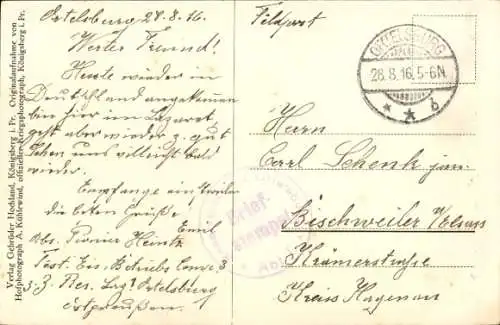 Verlag Gebrüder Hochland, Königsberg i. Pr. Originalaufnahme von
Hofphotograph A. Kühlewind, offizieller Kriegsphotograph, Königsberg i. Pr.
Ortelsburg 28.8.16
Werter Freund!
Heute wieder in
Deutschland angekommen
bin hier im Lazaret,
geht aber wieder z. gut
Sehen uns villeicht bald
wieder.
Empfange einstweilen
die besten Grüße, Emil
Abs. Pionier Heintz
Fest. Eis. Betriebs Comp. 3
z. Z. Res. Laz. Ortelsburg
Ostpreußen.
Feldpost
ORTELSBURG
28.8.16.5-6N.
* * b
Brief-
stempel
Herrn
Carl Schenk jun.
Bischweiler Elsass
Krämerstraße
Kreis Hagenau